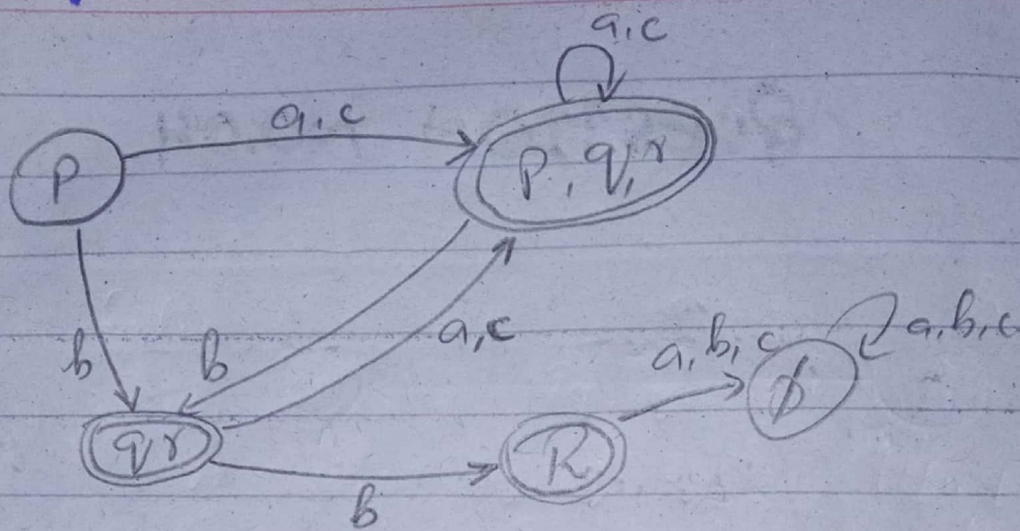 a,c
a,c
P
p,q,r
b
b
a,c
a,b,c
a,b,c
ϕ
qr
R
b